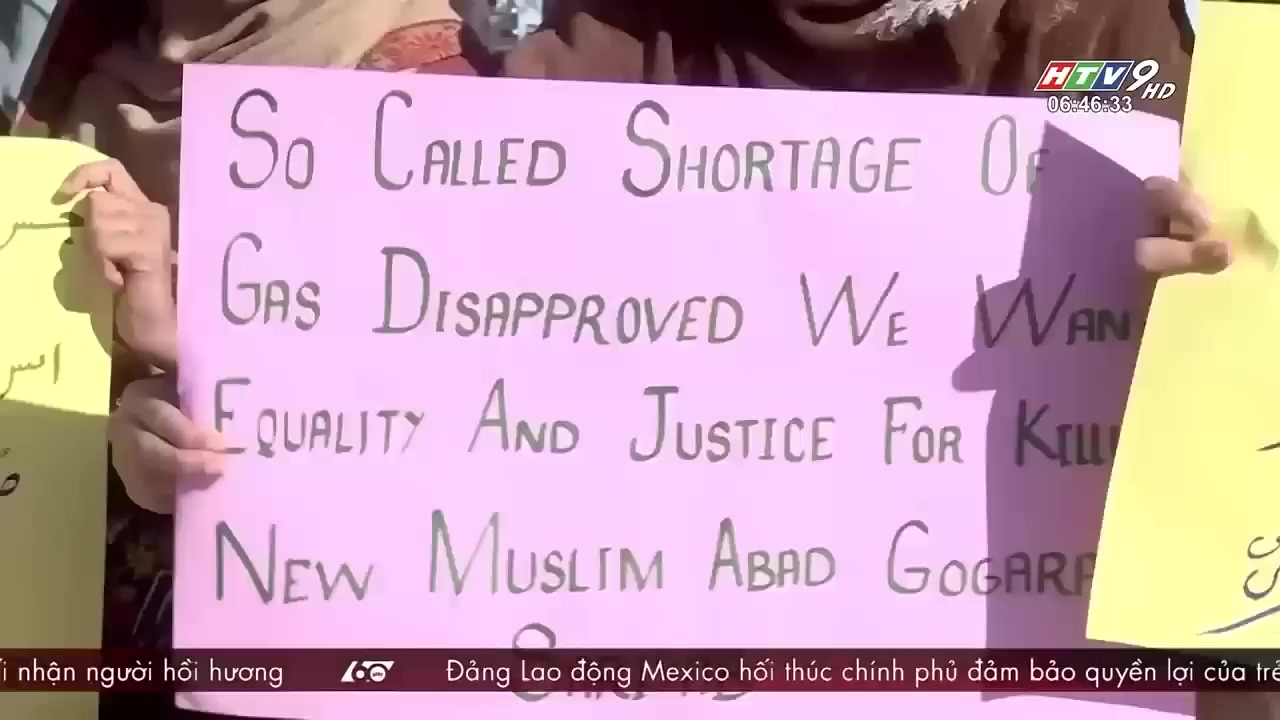 HTV9 HD
06:46:33
SO CALLED SHORTAGE OF
GAS DISAPPROVED WE WAN
EQUALITY AND JUSTICE FOR KILL
NEW MUSLIM ABAD GOGARA
nhận người hồi hương 60 Đảng Lao động Mexico hối thúc chính phủ đảm bảo quyền lợi của trẻ